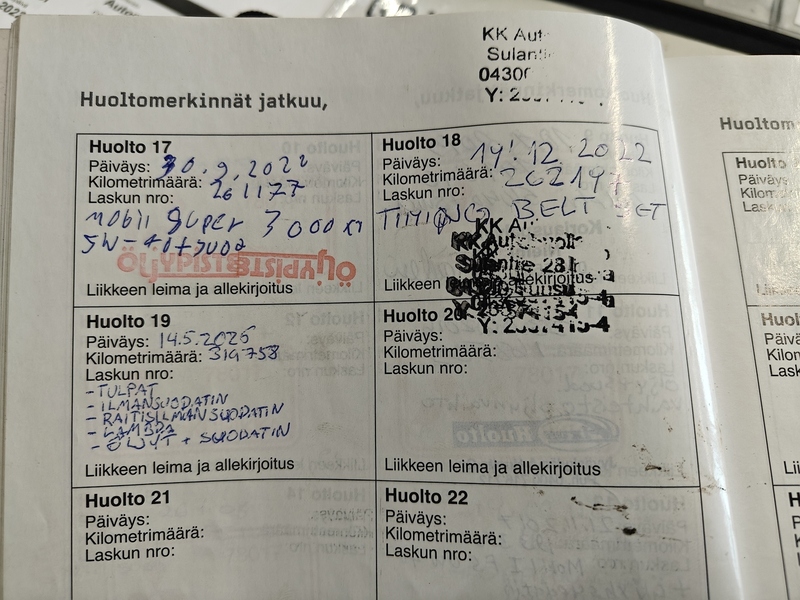 KK Aut
Sulant
0430
Y:
Huoltomerkinnät jatkuu,
Huolto 17
Päiväys: 30.9.2022
Kilometrimäärä: 261177
Laskun nro:
Mobil Super 3000 X1
5W-40+suod
ÖLJYPISTE
Liikkeen leima ja allekirjoitus
Huolto 18
Päiväys: 14.12.2022
Kilometrimäärä: 262197
Laskun nro:
TIMING BELT SET
KK
Liikkeen
Huolto 19
Päiväys: 14.5.2025
Kilometrimäärä: 319758
Laskun nro:
- TULPAT
- ILMANSUODATIN
- RAITISILMANSUODATIN
- LAMBDA
- ÖLJYT + SUODATIN
Liikkeen leima ja allekirjoitus
Huolto 20
Päiväys:
Kilometrimäärä:
Laskun nro:
Liikkeen leima ja allekirjoitus
Huolto 21
Päiväys:
Kilometrimäärä:
Laskun nro:
Huolto 22
Päiväys:
Kilometrimäärä:
Laskun nro:
Huoltom